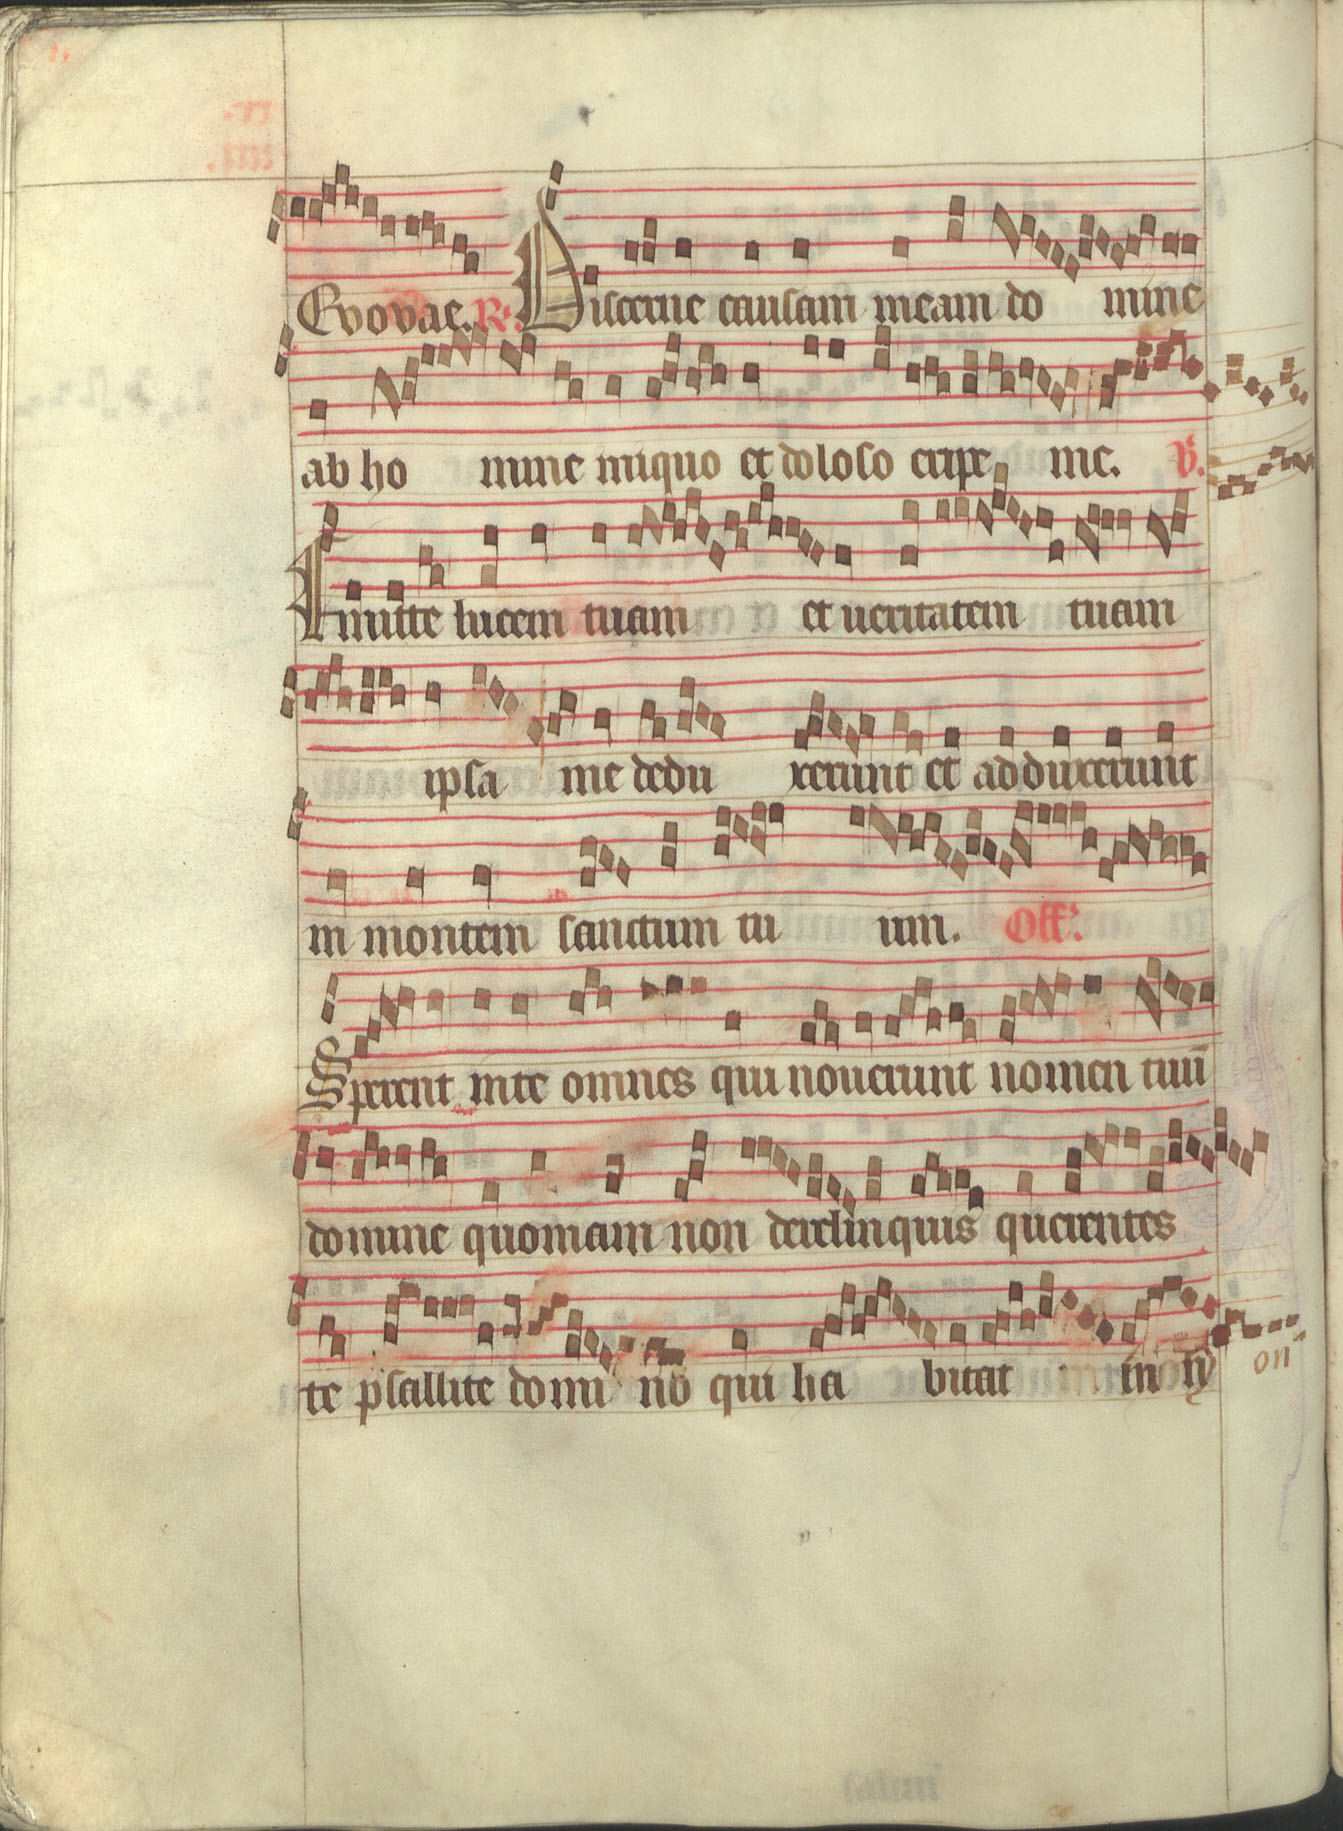 Evovae. R. Discerne causam meam do mine
ab ho mine iniquo et doloso eripe me. V.
Emitte lucem tuam et ueritatem tuam
ipsa me dedu xerunt et adduxerunt
in montem sanctum tu um. Off.
Sperent inte omnes qui nouerunt nomen tuū
domine quoniam non derelinquis querentes
te psallite domi no qui ha bitat in sy
on